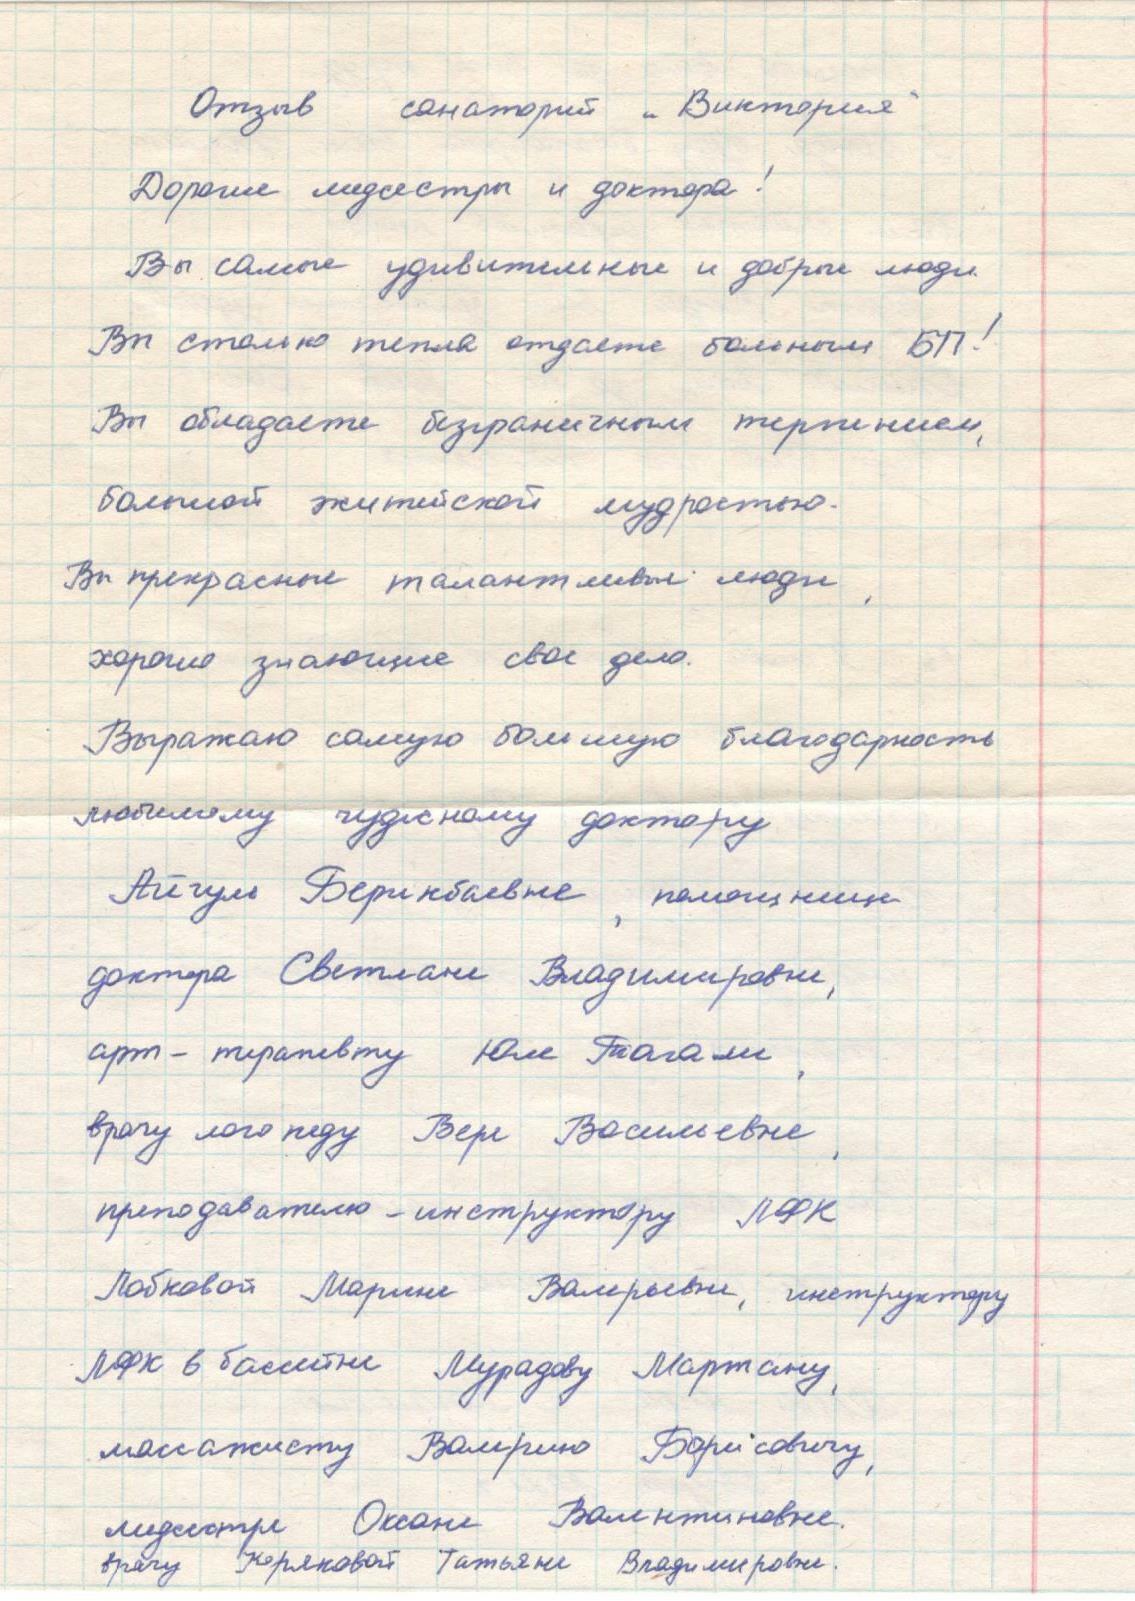 Отзыв санаторий „Виктория"
Дорогие медсестры и доктора!
Вы самые удивительные и добрые люди.
Вы столько тепла отдаете больным БП!
Вы обладаете безграничным терпением,
большой житейской мудростью.
Вы прекрасные талантливые люди,
хорошо знающие свое дело.
Выражаю самую большую благодарность
любимому чудесному доктору
Айгуль Берикбаевне, помощнице
доктора Светлане Владимировне,
арт-терапевту Юле
врачу логопеду Вере Васильевне,
преподавателю-инструктору ЛФК
Лобковой Марине Валерьевне, инструктору
ЛФК в бассейне Мурадову Мартану,
массажисту Валерию Борисовичу,
медсестре Оксане Валентиновне.
врачу Коряковой Татьяне Владимировне.